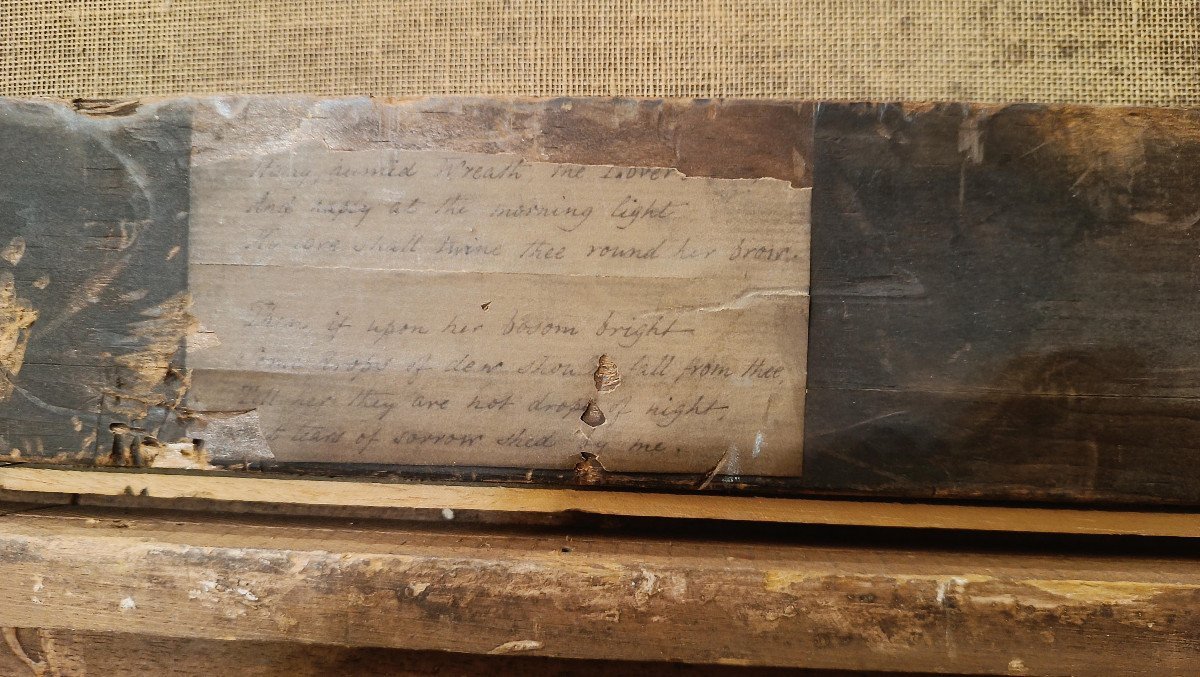 Wreath the Lover
And at the morning light
My love shall twine thee round her brow.
Then if upon her bosom bright
drops of dew fall from thee,
Tell her they are not drops of night,
tears of sorrow shed by me.